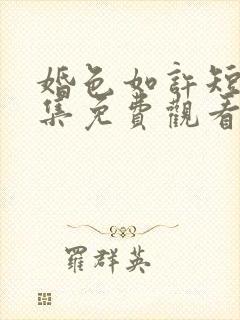 婚色如許短
集免費觀看
羅群英